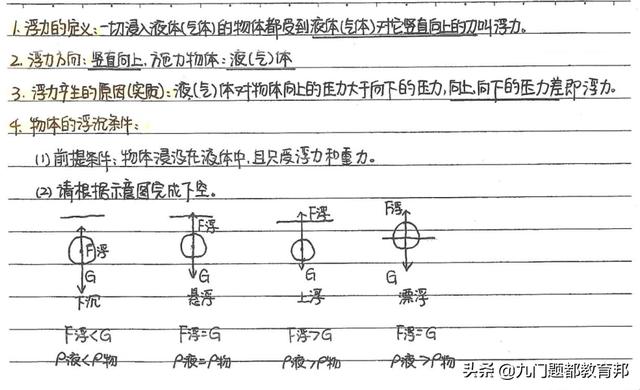 1. 浮力的定义:一切浸入液体(气体)的物体都受到液体(气体)对它竖直向上的力叫浮力。
2. 浮力方向:竖直向上,施力物体:液(气)体
3. 浮力产生的原因(实质):液(气)体对物体向上的压力大于向下的压力,向上、向下的压力差即浮力。
4. 物体的浮沉条件:
(1) 前提条件:物体浸没在液体中,且只受浮力和重力。
(2) 请根据示意图完成下空。
F浮 F浮 F浮 F浮
G G G G
下沉 悬浮 上浮 漂浮
F浮<G F浮=G F浮>G F浮=G
ρ液<ρ物 ρ液=ρ物 ρ液>ρ物 ρ液>ρ物
头条 @九门题都教育邦